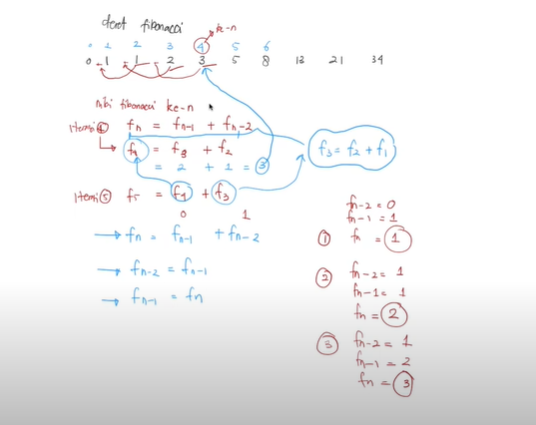 deret fibonacci
ke-n
0 1 2 3 4 5 6
0 1 1 2 3 5 8 13 21 34
Nilai fibonacci ke-n
Iterasi 4 fn = fn-1 + fn-2
f4 = f3 + f2
= 2 + 1 = 3
f3 = f2 + f1
Iterasi 5 f5 = f4 + f3
0 1
→ fn = fn-1 + fn-2
→ fn-2 = fn-1
→ fn-1 = fn
fn-2 = 0
fn-1 = 1
1 fn = 1
2 fn-2 = 1
fn-1 = 1
fn = 2
3 fn-2 = 1
fn-1 = 2
fn = 3